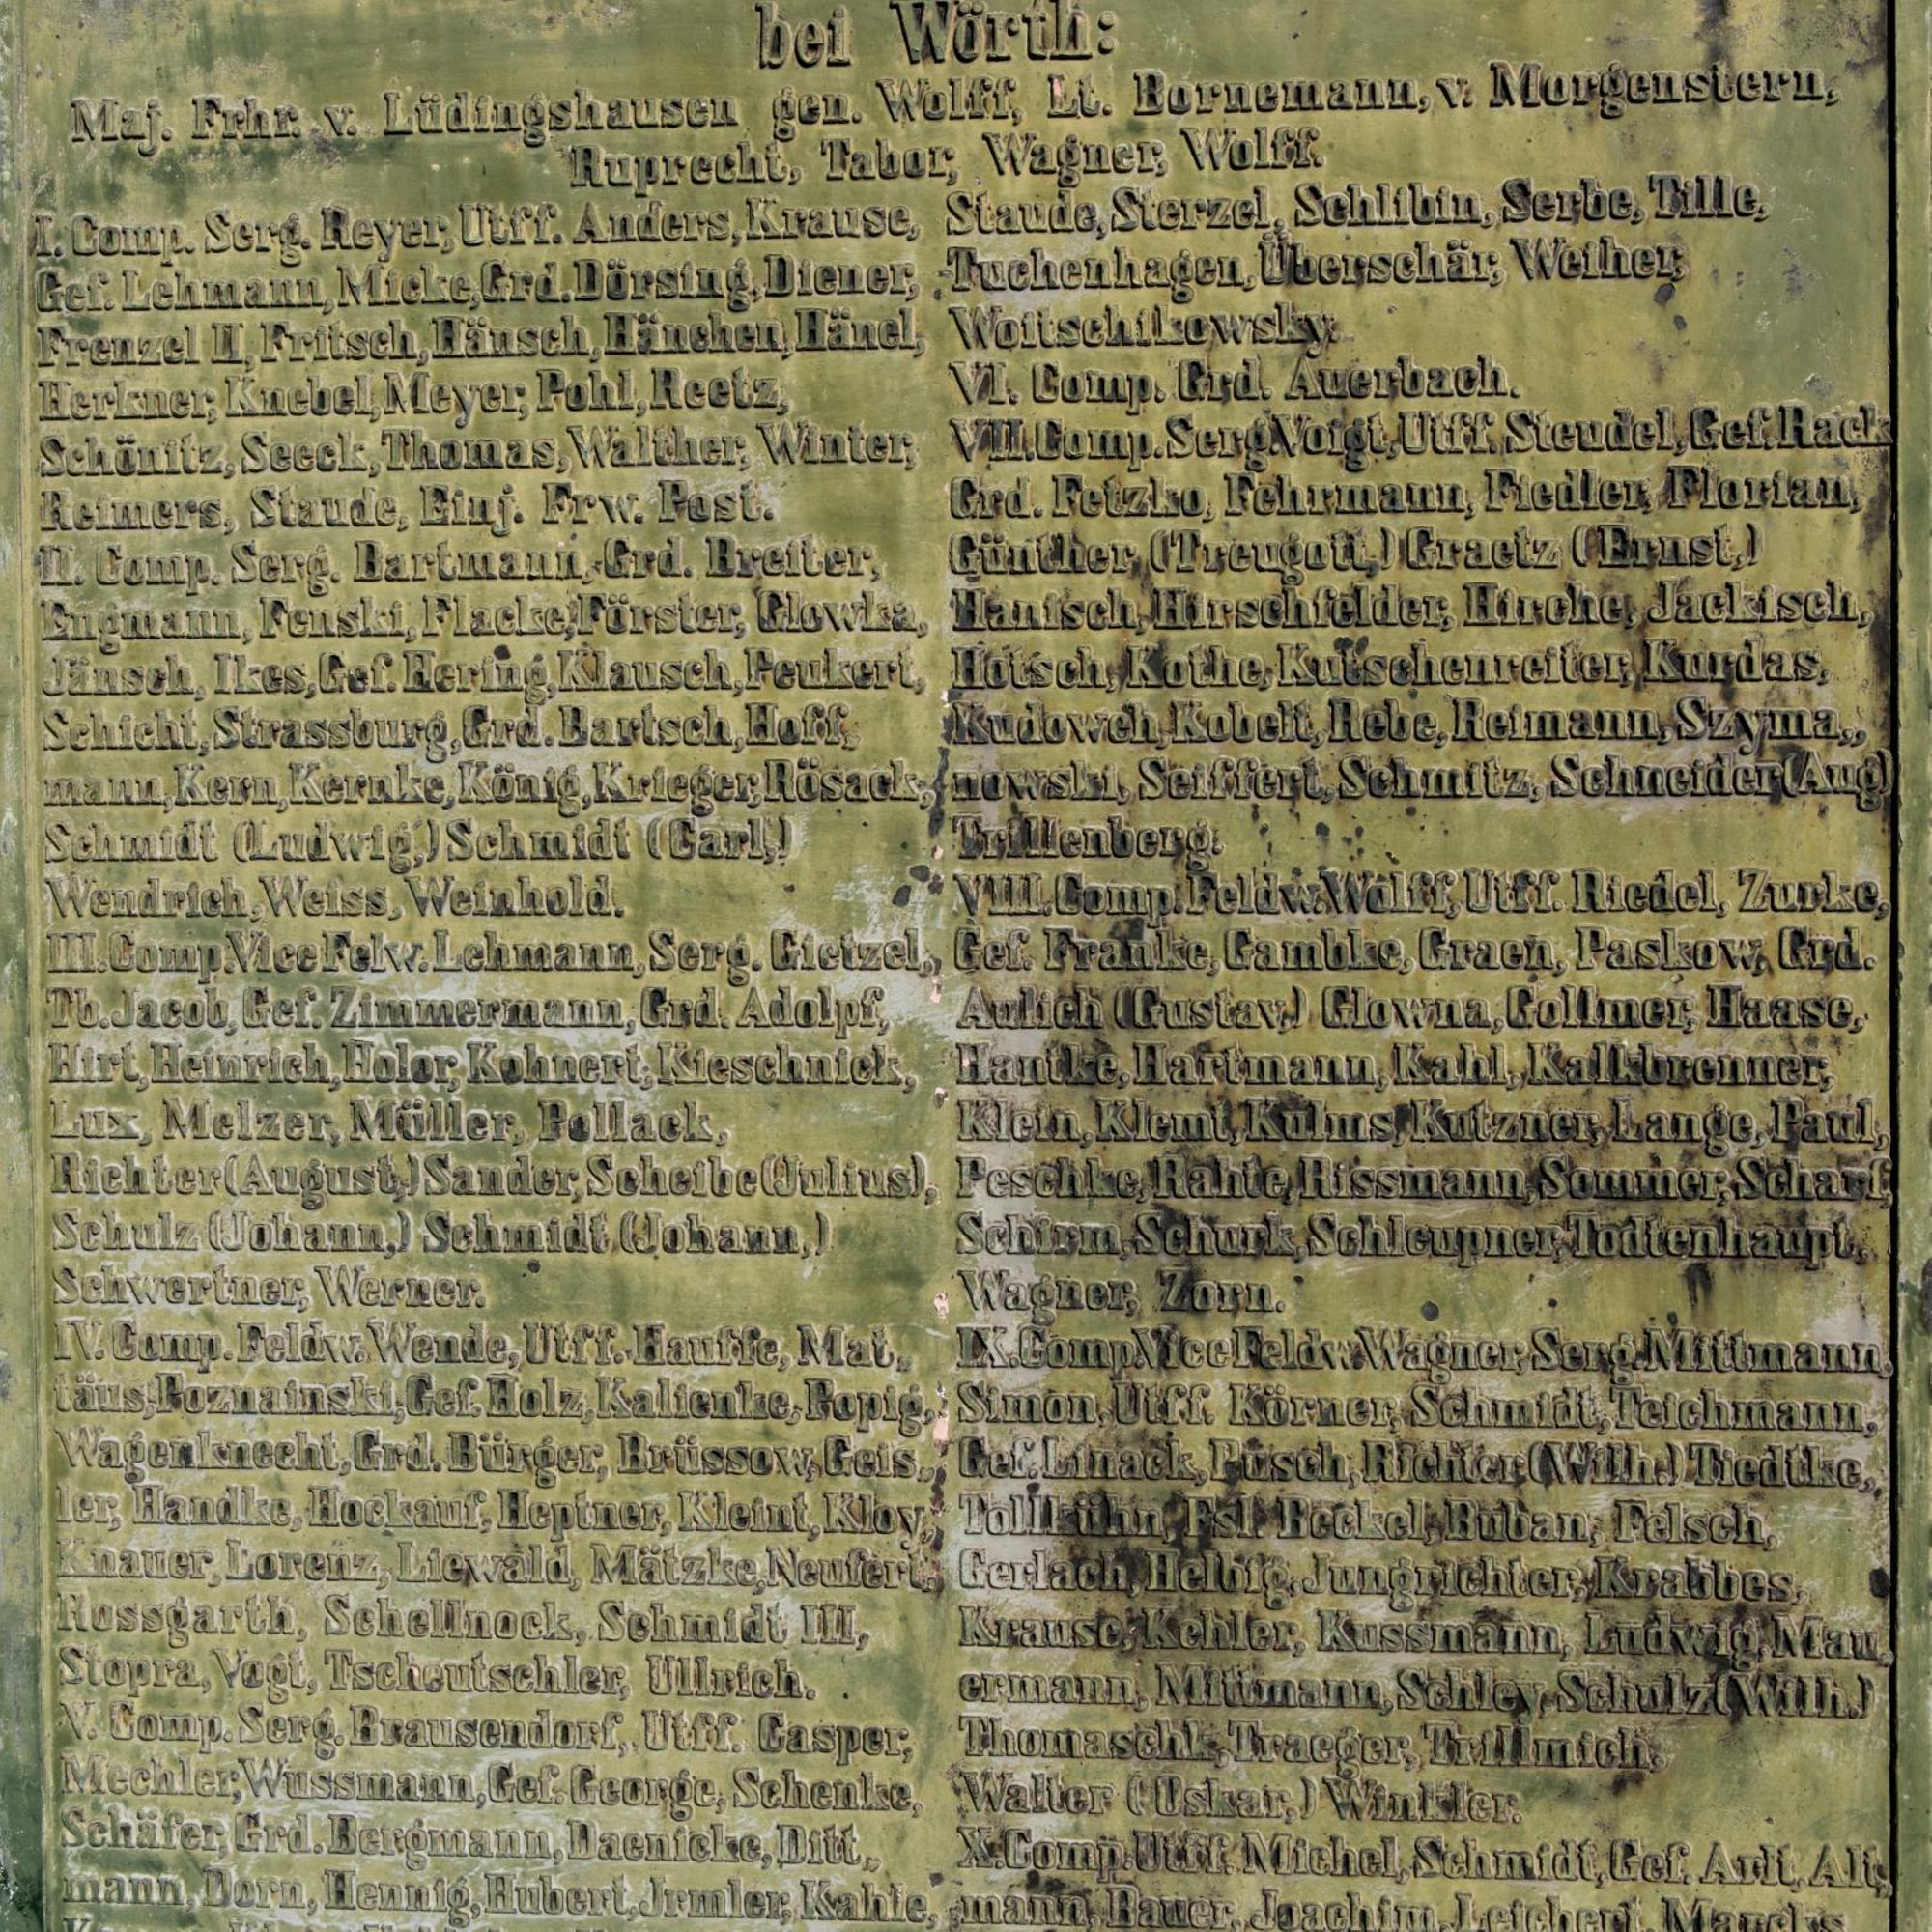 bei Wörth:
Maj. Frhr. v. Lüdingshausen gen. Wolff, Lt. Bornemann, v. Morgenstern,
Ruprecht, Tabor, Wagner, Wolff.
I. Comp. Serg. Reyer, Utff. Anders, Krause,
Gef. Lehmann, Micke, Grd. Dörsing, Diener,
Frenzel II, Fritsch, Hänsch, Hänchen, Hänel,
Herkner, Knebel, Meyer, Pohl, Reetz,
Schönitz, Seeck, Thomas, Walther, Winter,
Reimers, Staude, Einj. Frw. Post.
II. Comp. Serg. Bartmann, Grd. Breiter,
Engmann, Fenski, Flacke, Förster, Glowka,
Jänsch, Ikes, Gef. Hering, Klausch, Peukert,
Schicht, Strassburg, Grd. Bartsch, Hoff,
mann, Kern, Kernke, König, Krieger, Rösack,
Schmidt (Ludwig,) Schmidt (Carl,)
Wendrich, Weiss, Weinhold.
III. Comp. Vice Felw. Lehmann, Serg. Gietzel,
Tb. Jacob, Gef. Zimmermann, Grd. Adolpf,
Hirt, Heinrich, Holor, Kohnert, Kieschnick,
Lux, Melzer, Müller, Pollack,
Richter (August,) Sander, Scheibe (Julius),
Schulz (Johann,) Schmidt (Johann,)
Schwertner, Werner.
IV. Comp. Feldw. Wende, Utff. Hauffe, Mat,,
täus, Poznainski, Gef. Holz, Kalienke, Popig,
Wagenknecht, Grd. Bürger, Brüssow, Geis,,
ler, Handke, Hockauf, Heptner, Kleint, Kloy,
Knauer, Lorenz, Liewald, Mätzke, Neufert,
Rossgarth, Schellnock, Schmidt III,
Stopra, Vogt, Tscheutschler, Ullrich.
V. Comp. Serg. Brausendorf, Utff. Casper,
Mechler, Wussmann, Gef. George, Schenke,
Schäfer, Grd. Bergmann, Daenicke, Ditt,,
mann, Dorn, Hennig, Hubert, Jrmler, Kahle,
Staude, Sterzel, Schlibin, Serbe, Tille,
Tuchenhagen, Überschär, Weiher,
Woitschikowsky.
VI. Comp. Grd. Auerbach.
VII. Comp. Serg. Voigt, Utff. Steudel, Gef. Hack
Grd. Fetzko, Fehrmann, Fiedler, Florian,
Günther, (Treugott,) Graetz (Ernst,)
Hanisch, Hirschfelder, Hirche, Jäckisch,
Hötsch, Kothe, Kutschenreiter, Kurdas,
Kudoweh, Kobelt, Rebe, Reimann, Szyma,,
nowski, Seiffert, Schmitz, Schneider (Aug)
Trillenberg.
VIII. Comp. Feldw. Wolff, Utff. Riedel, Zurke,
Gef. Franke, Gambke, Graen, Paskow, Grd.
Aulich (Gustav,) Glowna, Gollmer, Haase,
Hantke, Hartmann, Kahl, Kalkbrenner,
Klein, Klemt, Kulms, Kutzner, Lange, Paul,
Peschke, Rahte, Rissmann, Sommer, Scharf,
Schirm, Schurk, Schleupner, Todtenhaupt,
Wagner, Zorn.
IX. Comp. Vice Feldw. Wagner, Serg. Mittmann,
Simon, Utff. Körner, Schmidt, Teichmann,
Gef. Linack, Püsch, Richter (Wilh.) Tiedtke,
Tollkühn, Fsl. Beckel, Buban, Felsch,
Gerlach, Helbig, Jungrichter, Krabbes,
Krause, Kehler, Kussmann, Ludwig, Mau,
ermann, Mittmann, Schley, Schulz (Wilh.)
Thomaschk, Traeger, Trillmich,
Walter (Oskar,) Winkler.
X. Comp. Utff. Michel, Schmidt, Gef. Arlt, Alt,
mann, Bauer, Joachim, Leichert, Marcks,